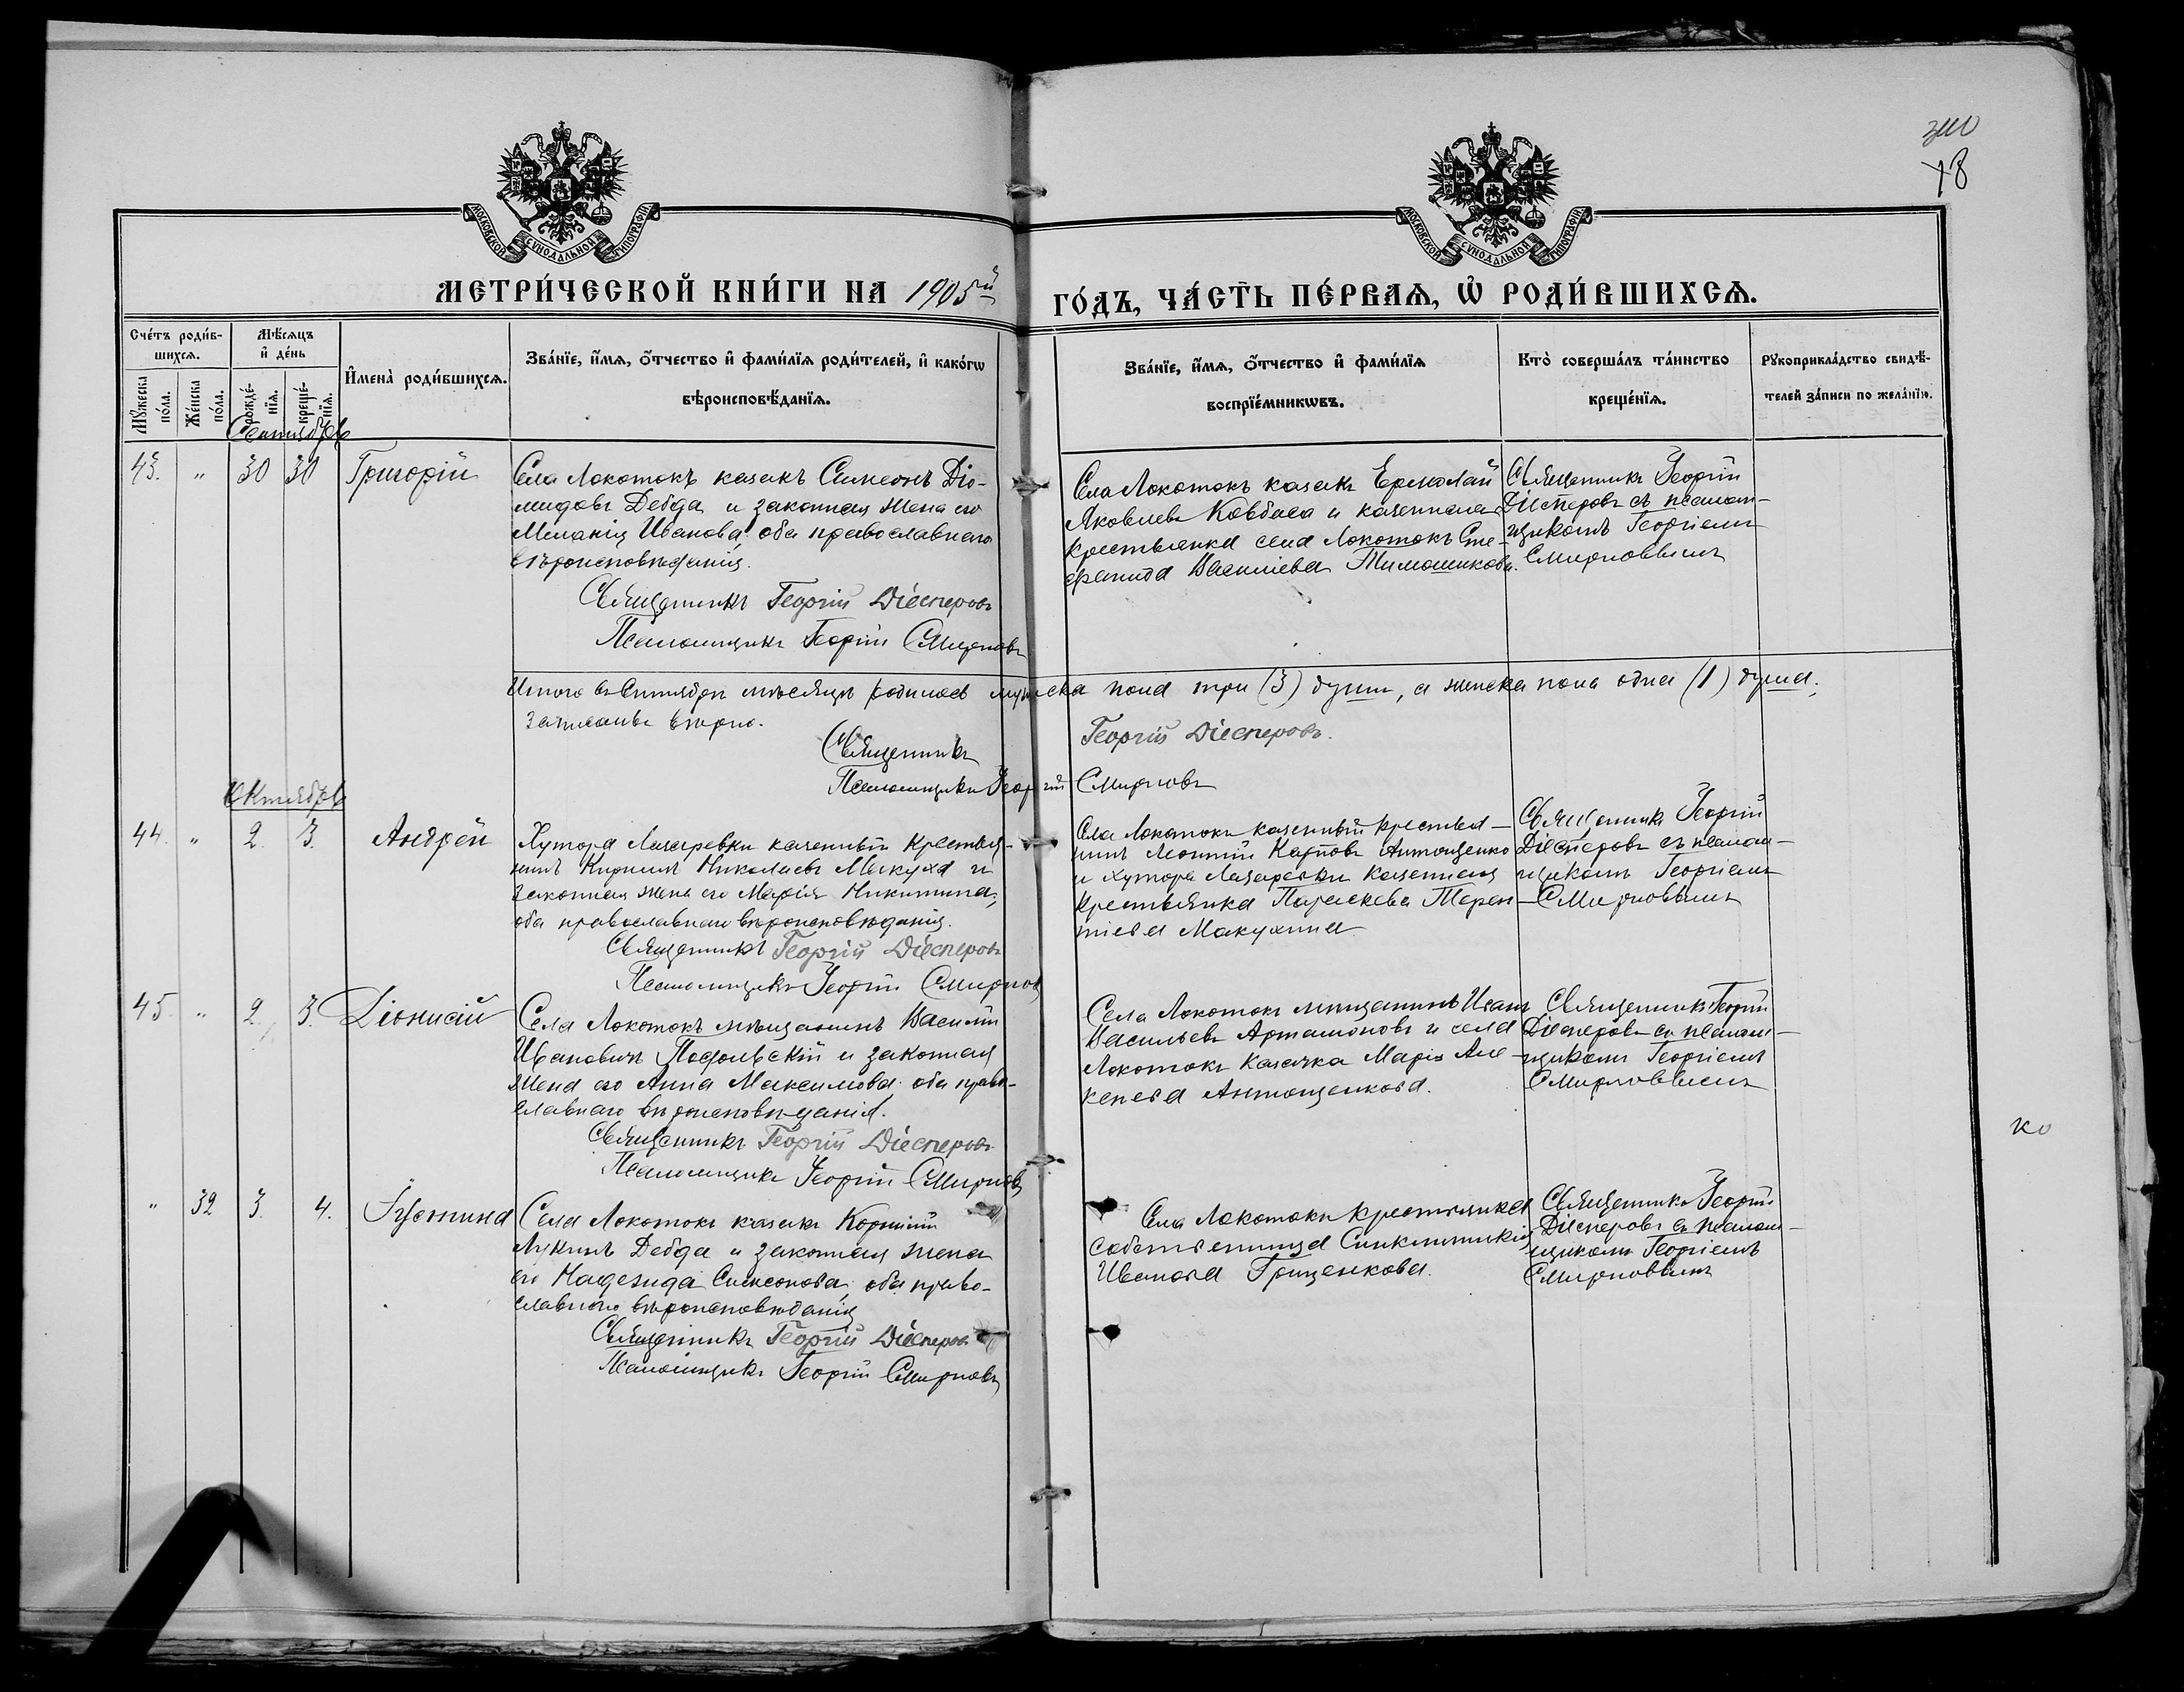 зш
18
МОСКОВСКОЙ СѴНОДАЛЬНОЙ ТИПОГРАФІИ
МОСКОВСКОЙ СѴНОДАЛЬНОЙ ТИПОГРАФІИ
МЕТРИ́ЧЕСКОЙ КНИ́ГИ НА 1905й ГО́ДЪ, ЧА́СТЬ ПЕ́РВАЯ, Ѡ РОДИ́ВШИХСЯ.
Сче́тъ роди́в-
шихся.
Мѣсяцъ
и де́нь
Имена̀ роди́вшихся.
Зва́нїе, и́мя, о́тчество и фами́лїя роди́телей, и како́гѡ
вѣроисповѣ́данїя.
Зва́нїе, и́мя, о́тчество и фами́лїя
воспрїе́мникѡвъ.
Кто̀ соверша́лъ та́инство
креще́нїя.
Рꙋкоприкла́дство свидѣ́-
телей за́писи по жела́нїю.
Мꙋ́жеска по́ла.
Же́нска по́ла.
рожде́-нїя.
креще́-нїя.
Сентябрь
43. " 30 30 Григорій
Села Локотокъ казакъ Симеонъ Діо-
мидовъ Дебда и законная жена его
Меланія Иванова, оба православнаго
вѣроисповѣданія.
Священникъ Георгій Діесперовъ
Псаломщикъ Георгій Смирновъ
Села Локотокъ казакъ Ермолай
Яковлевъ Ковбаса и казенная
крестьянка села Локотокъ Сте-
фанида Васильева Тимошенкова.
Священникъ Георгій
Діесперовъ съ псалом-
щикомъ Георгіемъ
Смирновымъ
Итого въ Сентябрѣ мѣсяцѣ родилось мужеска пола три (3) души, а женска пола одна (1) душа;
записанъ вѣрно.
Священникъ Георгій Діесперовъ.
Псаломщикъ Георгій Смирновъ
Октябрь
44. " 2. 3. Андрей
Хутора Лазаревки казенный крестья-
нинъ Кириллъ Николаевъ Макуха и
законная жена его Марія Никитина,
оба православнаго вѣроисповѣданія.
Священникъ Георгій Діесперовъ
Псаломщикъ Георгій Смирновъ
Села Локотокъ казенный крестья-
нинъ Леонтій Карповъ Антощенко
и хутора Лазаревки казенная
крестьянка Параскева Терен-
тіева Макухина
Священникъ Георгій
Діесперовъ съ псалом-
щикомъ Георгіемъ
Смирновымъ
45. " 2. 3. Діонисій
Села Локотокъ мѣщанинъ Василій
Ивановичъ Подольскій и законная
жена его Анна Максимова, оба право-
славнаго вѣроисповѣданія.
Священникъ Георгій Діесперовъ
Псаломщикъ Георгій Смирновъ
Села Локотокъ мѣщанинъ Иванъ
Васильевъ Артамоновъ и села
Локотокъ казачка Марія Але-
кѣева Антощенкова.
Священникъ Георгій
Діесперовъ съ псалом-
щикомъ Георгіемъ
Смирновымъ
ко
" 32 3. 4. Іустина
Села Локотокъ казакъ Корнилій
Лукинъ Дебда и законная жена
его Надежда Симеонова, оба право-
славнаго вѣроисповѣданія
Священникъ Георгій Діесперовъ
Псаломщикъ Георгій Смирновъ
Села Локотокъ крестьянка
собственница Синклитикія
Иванова Грищенкова.
Священникъ Георгій
Діесперовъ съ псалом-
щикомъ Георгіемъ
Смирновымъ